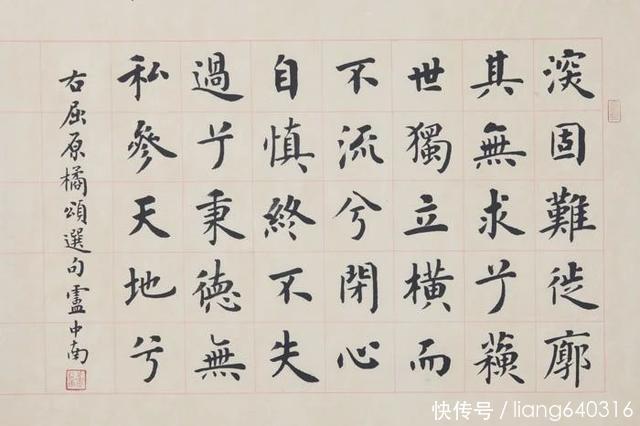 深固難徙廓
其無求兮蘓
世獨立橫而
不流兮閉心
自慎終不失
過兮秉德無
私參天地兮
右屈原橘頌選句盧中南
快传号／liang640316